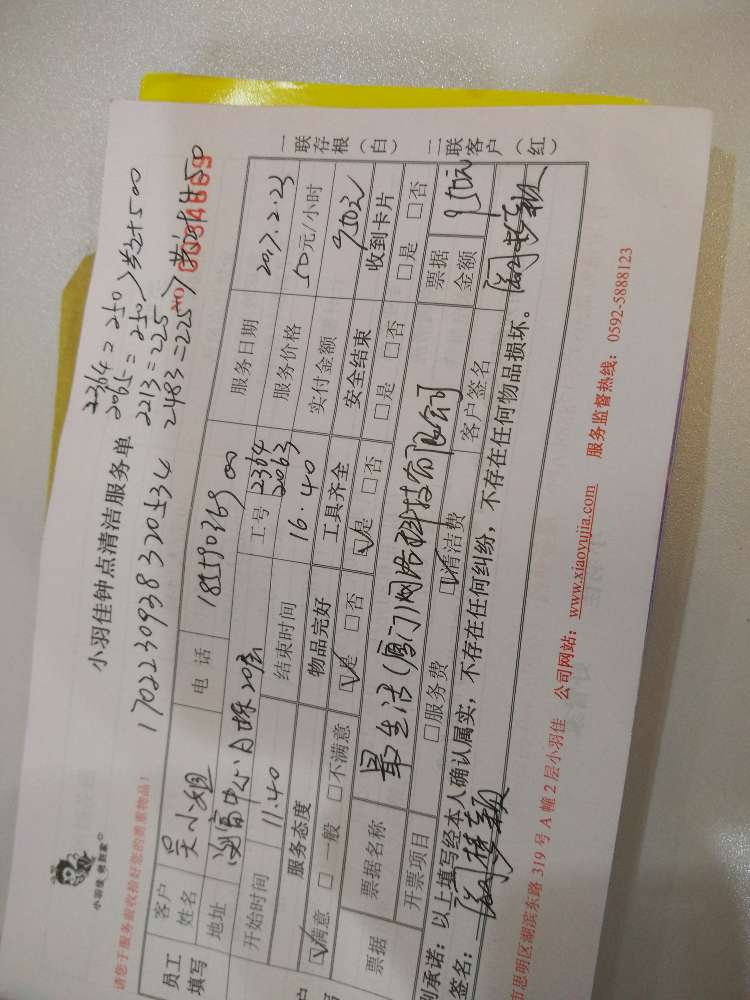 小羽佳 您到家
小羽佳钟点清洁服务单
2364=250
2063=250 >共计500
2213=225
2483=225 >共计450
请您于服务前收拾好您的贵重物品！
1702230938320534
NO 0034869
员工填写
客户姓名 吴小姐 电话 18559076900 服务日期 2017.2.23
地址 20层 工号 2364 2063 服务价格 50元/小时
开始时间 11.40 结束时间 16.40 实付金额 950元
服务态度 物品完好 工具齐全 安全结束 收到卡片
☑满意 □一般 □不满意 ☑是 □否 ☑是 □否 □是 □否 □是 □否
票据 票据名称 最生活(厦门)网络科技有限公司 票据金额 950元
开票项目 □服务费 ☑清洁费 客户签名
承诺：以上填写经本人确认属实，不存在任何纠纷，不存在任何物品损坏。
签名：
市思明区湖滨东路 319 号 A 幢 2 层小羽佳 公司网站：www.xiaoyujia.com 服务监督热线：0592-5888123
一联存根（白） 二联客户（红）